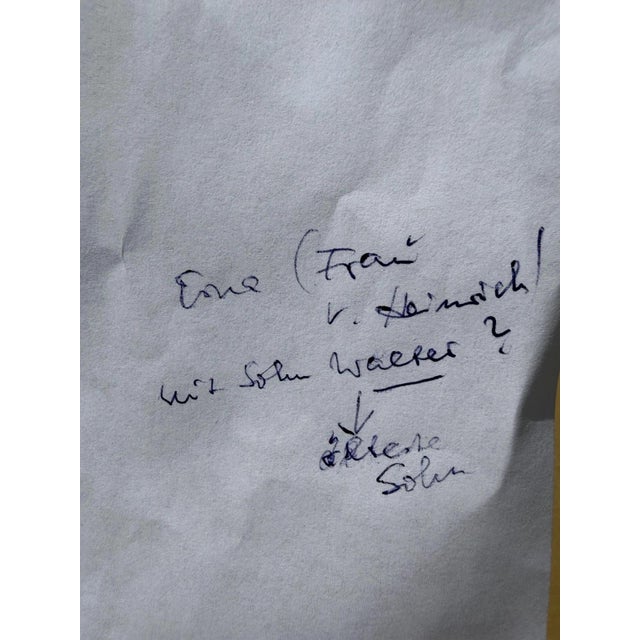 Erna (Frau
v. Heinrich)
mit Sohn Walter?
älteste
Sohn